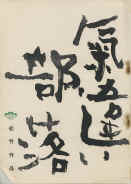 氣違い
部落
松竹作品